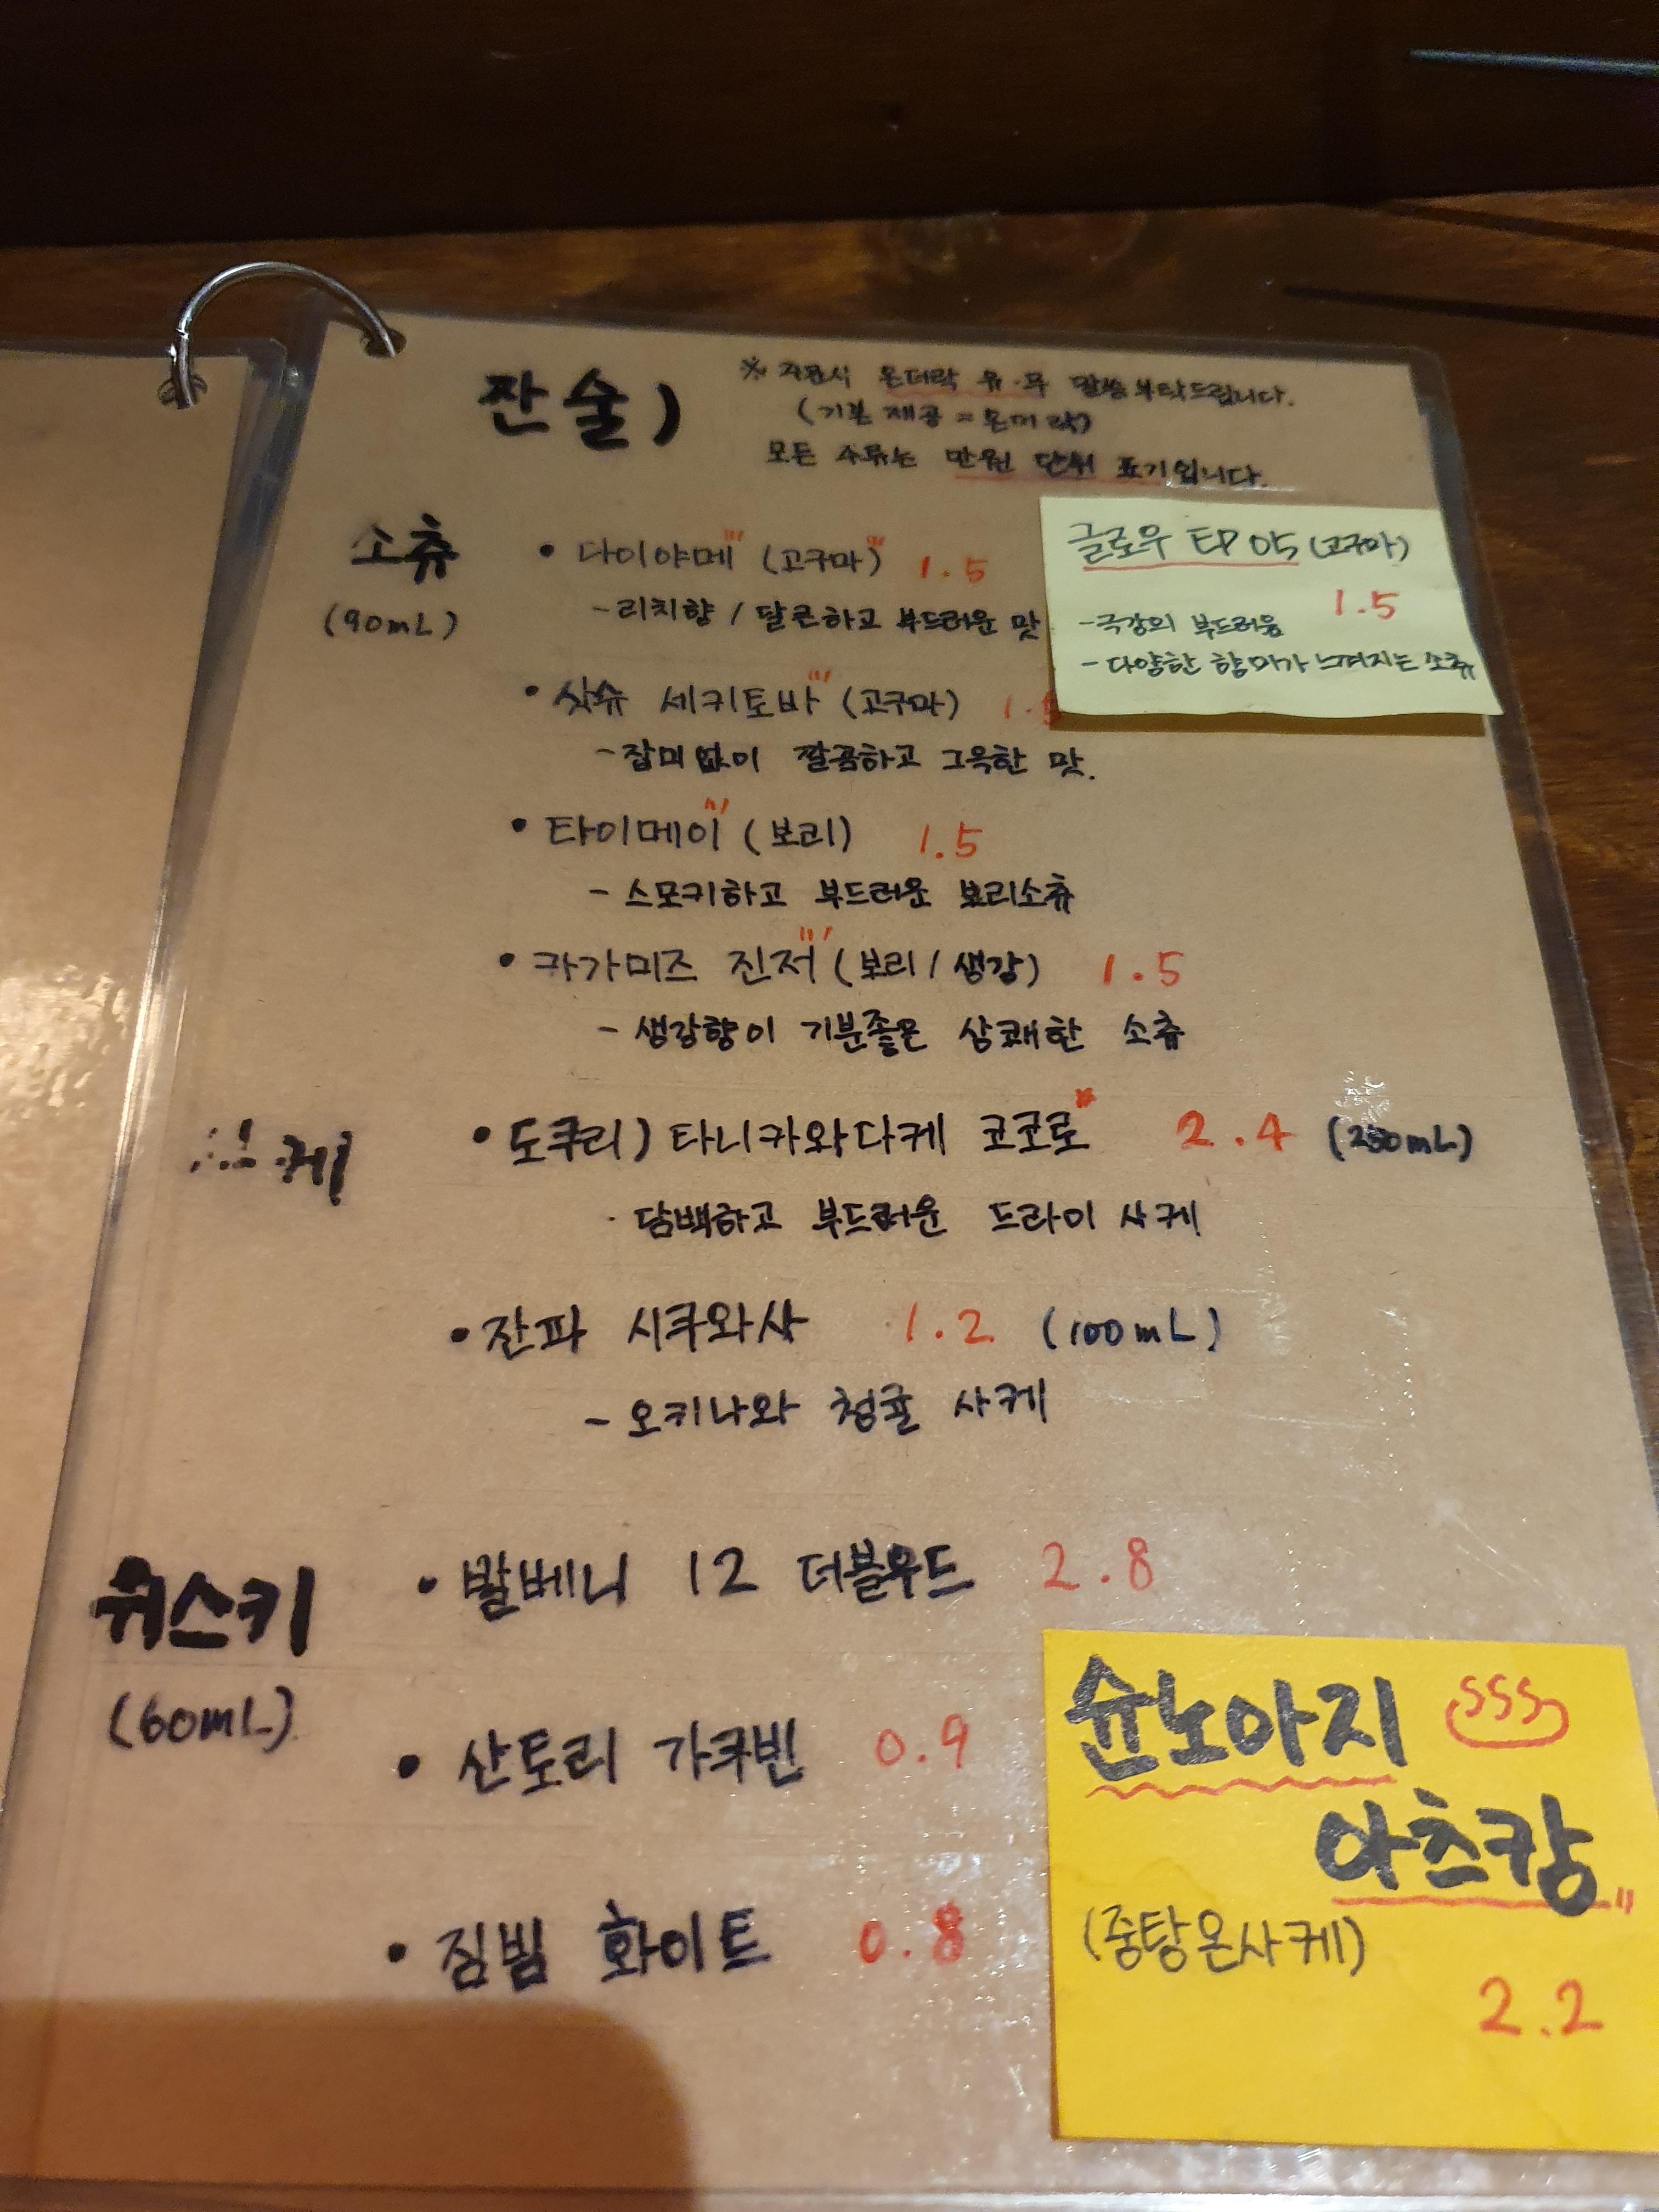 잔술)
※ 주문시 온더락 유·무 말씀 부탁드립니다.
(기본 제공 = 온더락)
모든 주류는 만원 단위 표기입니다.
소츄
(90mL)
• 다이야메 (고구마) 1.5
- 리치향 / 달콘하고 부드러운 맛
글로우 EP 05 (고구마)
1.5
- 극강의 부드러움
- 다양한 향미가 느껴지는 소츄
• 싯슈 세키토바 (고구마) 1.5
- 잡미없이 깔끔하고 그윽한 맛.
• 타이메이 (보리) 1.5
- 스모키하고 부드러운 보리소츄
• 카가미즈 진저 (보리 / 생강) 1.5
- 생강향이 기분좋은 상쾌한 소츄
• 도쿠리) 타니카와다케 코코로 2.4 (250mL)
· 담백하고 부드러운 드라이 사케
• 잔파 시쿠와사 1.2 (100mL)
- 오키나와 청귤 사케
위스키
(60mL)
• 발베니 12 더블우드 2.8
• 산토리 가쿠빈 0.9
• 짐빔 화이트 0.8
윤노아지
아츠캉
(중탕온사케)
2.2